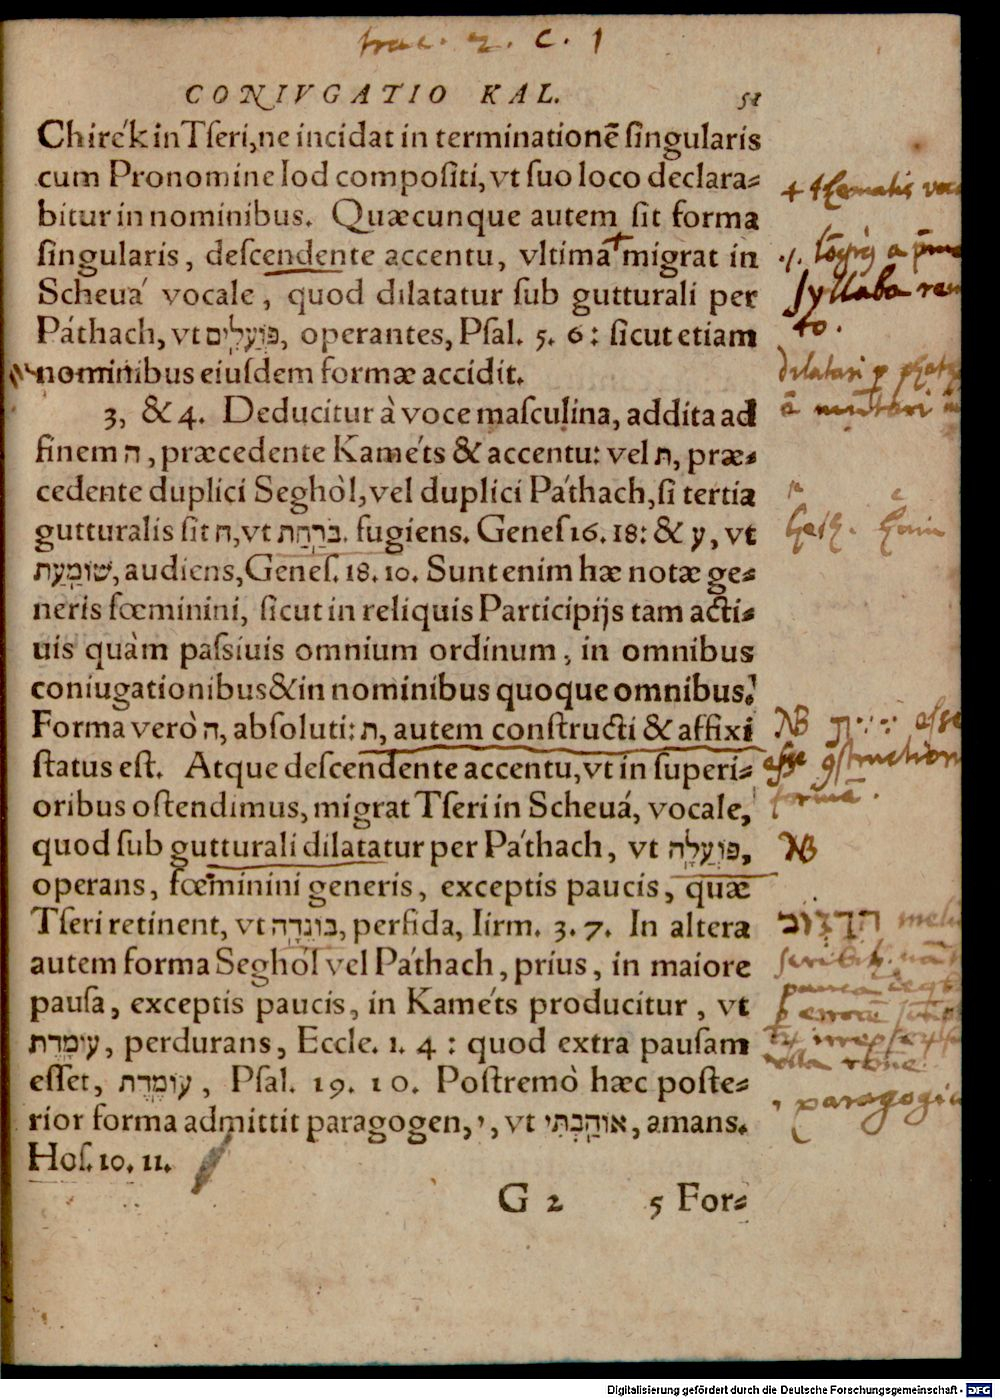 trac. 2. C. 1
CONIVGATIO KAL. 51
Chiréκ in Tſeri, ne incidat in terminationē ſingularis
cum Pronomine Iod compoſiti, vt ſuo loco declara⸗
bitur in nominibus. Quæcunque autem ſit forma
ſingularis, deſcendente accentu, vltima + migrat in
Scheuá vocale, quod dilatatur ſub gutturali per
Páthach, vt פּוֹעֲלִים, operantes, Pſal. 5. 6: ſicut etiam
nominibus eiuſdem formæ accidit.
3, & 4. Deducitur à voce maſculina, addita ad
finem ה, præcedente Kaméts & accentu: vel ת, præ⸗
cedente duplici Seghòl, vel duplici Páthach, ſi tertia
gutturalis ſit ח, vt בֹּרַחַת. fugiens. Geneſ 16. 18: & ע, vt
שׁוֹמַעַת, audiens, Geneſ. 18. 10. Sunt enim hæ notæ ge⸗
neris fœminini, ſicut in reliquis Participijs tam acti⸗
uis quàm paſsiuis omnium ordinum, in omnibus
coniugationibus & in nominibus quoque omnibus.
Forma verò ה, abſoluti: ת, autem conſtructi & affixi
ſtatus eſt. Atque deſcendente accentu, vt in ſuperi⸗
oribus oſtendimus, migrat Tſeri in Scheuá, vocale,
quod ſub gutturali dilatatur per Páthach, vt פּוֹעֲלָה,
operans, fœminini generis, exceptis paucis, quæ
Tſeri retinent, vt בּוֹגֵדָה, perfida, Iirm. 3. 7. In altera
autem forma Seghól vel Páthach, prius, in maiore
pauſa, exceptis paucis, in Kaméts producitur, vt
עוֹמָדֶת, perdurans, Eccle. 1. 4: quod extra pauſam
eſſet, עוֹמֶדֶת, Pſal. 19. 10. Poſtremò hæc poſte⸗
rior forma admittit paragogen, י, vt אוֹהַבְתִּי, amans.
Hoſ. 10. 11.
G 2 5 For⸗
+ thematis
a
ſyllaba
to.
dilatari p
mutari
heth.
NB esse
esse
formā.
NB
paragogi
Digitalisierung gefördert durch die Deutsche Forschungsgemeinschaft - DFG